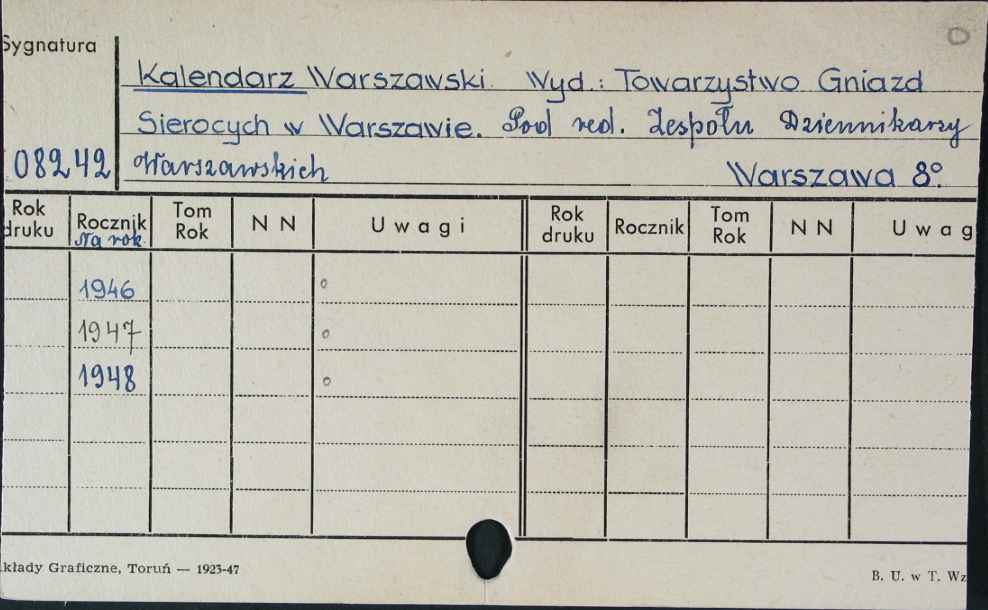 Sygnatura
Kalendarz Warszawski. Wyd.: Towarzystwo Gniazd
Sierocych w Warszawie. Pod red. Zespołu Dziennikarzy
08242 Warszawskich Warszawa 8°.
Rok druku Rocznik Na rok Tom Rok N N Uwagi Rok druku Rocznik Tom Rok N N Uwag
1946 o
1947 o
1948 o
kłady Graficzne, Toruń — 1923-47
B. U. w T. Wz